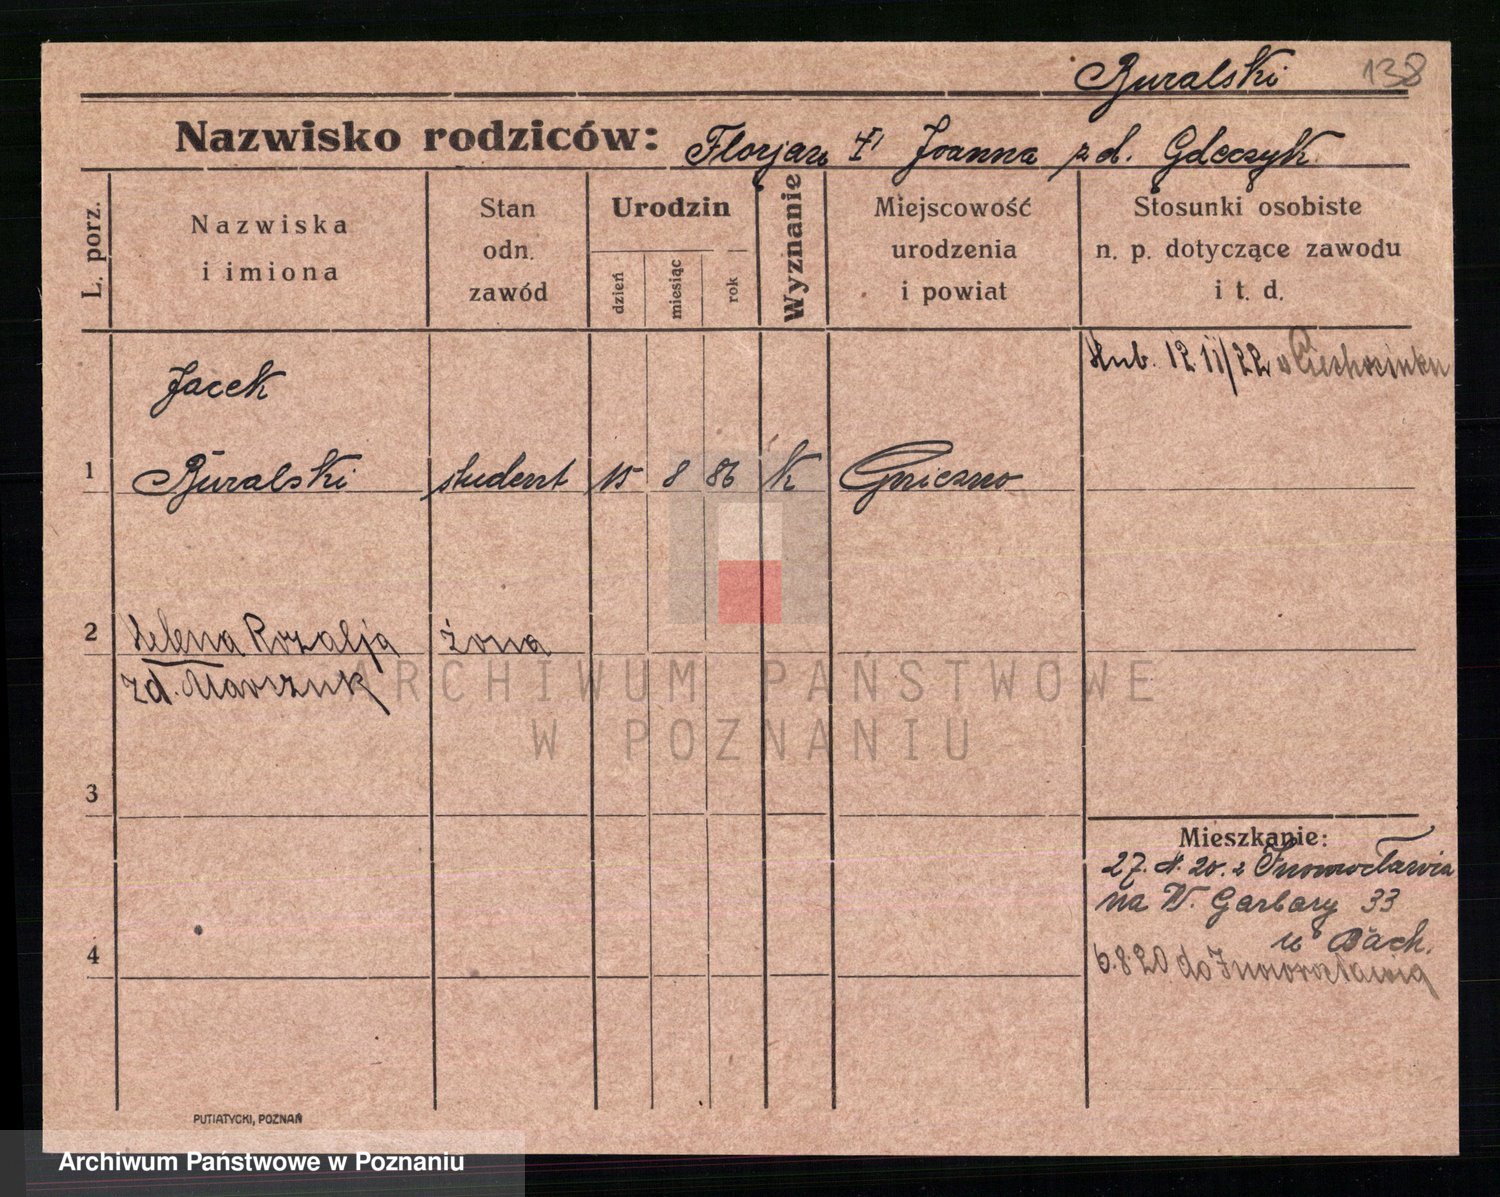 Buralski 138
Nazwisko rodziców: Florjan Joanna zd. Gdeczyk
L. porz.
Nazwiska
i imiona
Stan
odn.
zawód
Urodzin
dzień
miesiąc
rok
Wyznanie
Miejscowość
urodzenia
i powiat
Stosunki osobiste
n. p. dotyczące zawodu
i t. d.
ślub. 12 11/22 w Ciechocinku
Jacek
1 Buralski student 15 8 86 k Gniezno
2 Helena Rozalja żona
zd. Marczuk
3
Mieszkanie:
27. 4. 20. z Inowrocławia
na W. Garbary 33
u Bach.
4
6.8.20 do Inowrocławia
ARCHIWUM PAŃSTWOWE
W POZNANIU
PUTIATYCKI, POZNAŃ
Archiwum Państwowe w Poznaniu